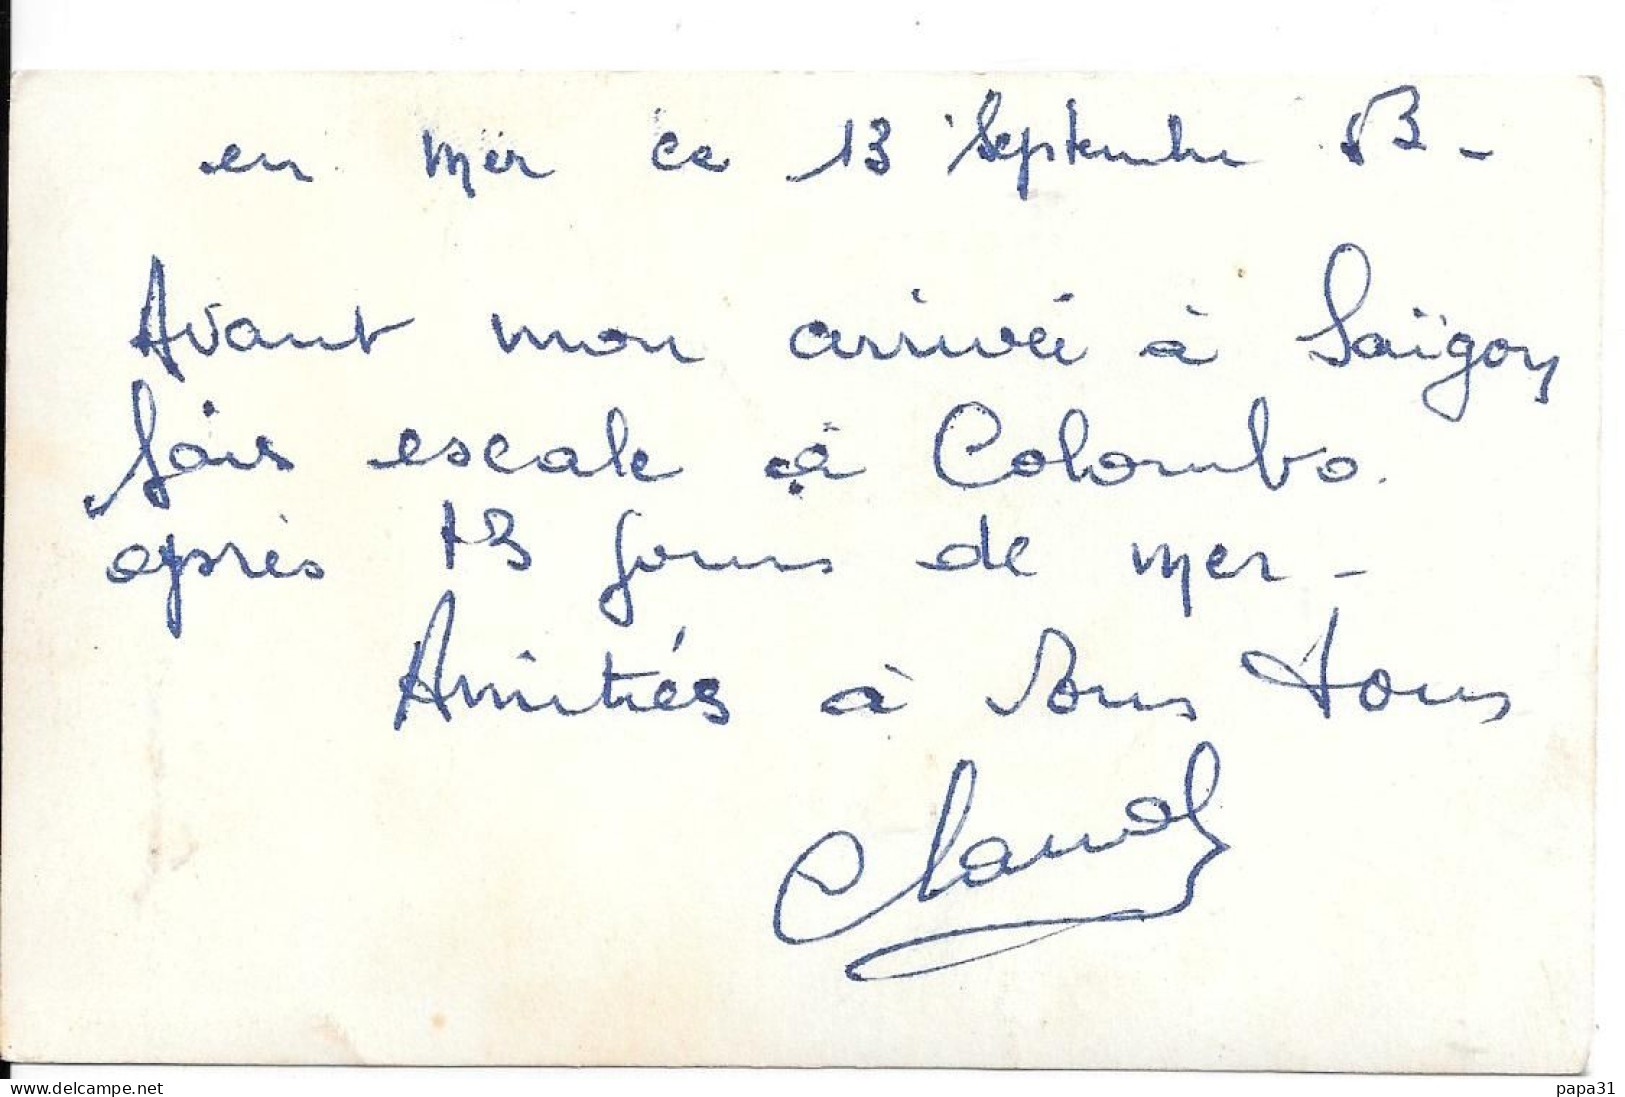 en mer ce 13 Septembre 53 -
Avant mon arrivée à Saïgon
fais escale à Colombo.
après 13 jours de mer -
Amitiés à Vous tous
Claude
www.delcampe.net
papa31